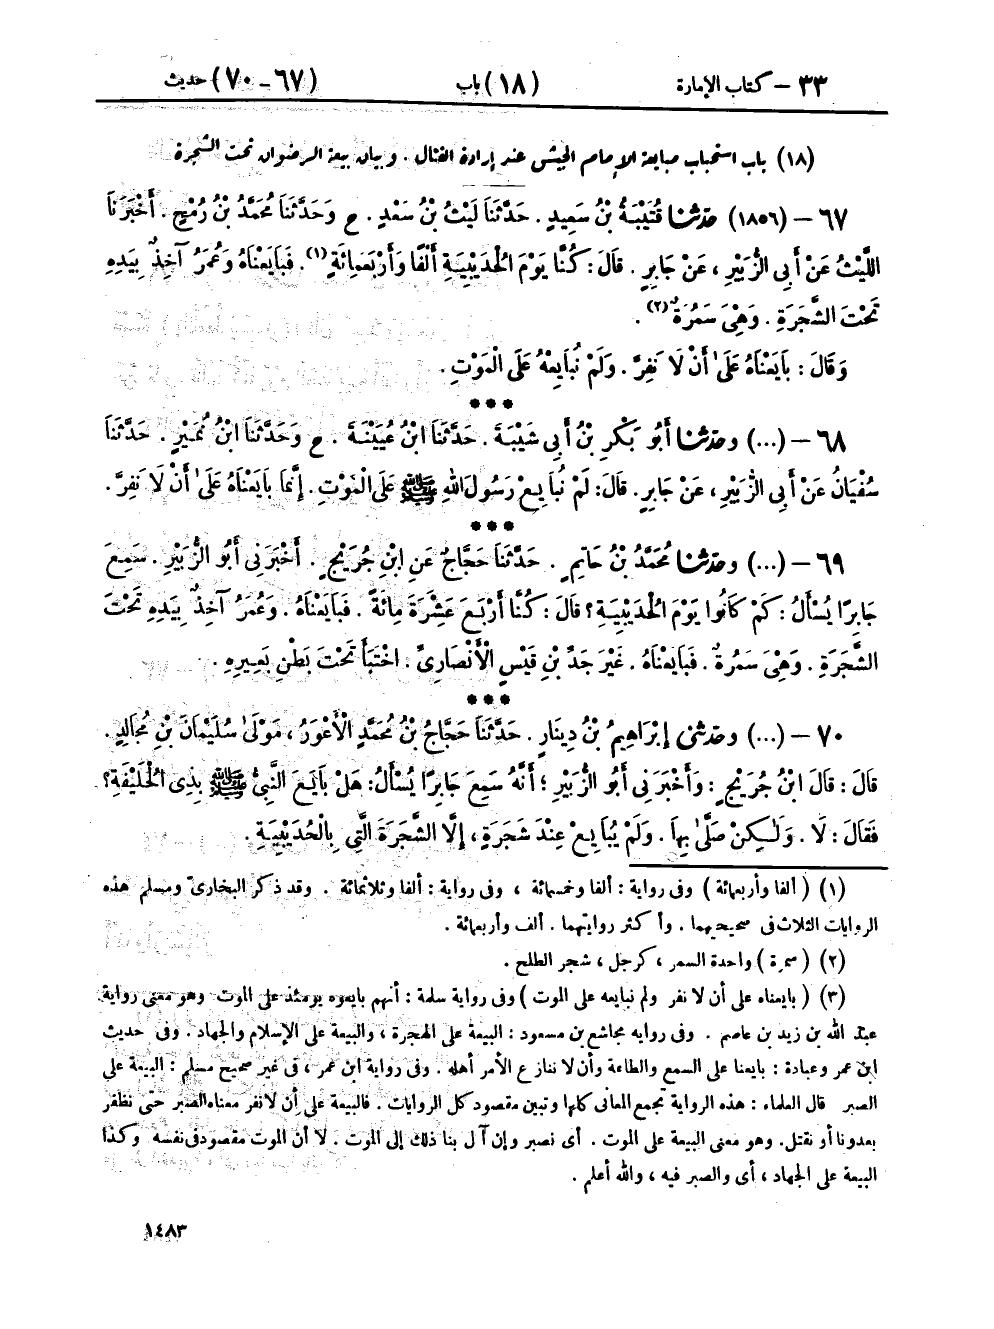 ٣٣ — كتاب الإمارة (١٨) باب (٦٧ - ٧٠) حديث
(١٨) باب استحباب مبايعة الإمام الجيش عند إرادة القتال . وبيان بيعة الرضوان تحت الشجرة
٦٧ — (١٨٥٦) حدّثنا قُتَيْبَةُ بْنُ سَعِيدٍ . حَدَّثَنَا لَيْثُ بْنُ سَعْدٍ . ح وَحَدَّثَنَا مُحَمَّدُ بْنُ رُمْحٍ . أَخْبَرَنَا
اللَّيْثُ عَنْ أَبِى الزُّبَيْرِ ، عَنْ جَابِرٍ . قَالَ : كُنَّا يَوْمَ الْحُدَيْبِيَةِ أَلْفًا وَأَرْبَعَمِائَةٍ (١) . فَبَايَعْنَاهُ وَعُمَرُ آخِذٌ بِيَدِهِ
تَحْتَ الشَّجَرَةِ . وَهْىَ سَمُرَةٌ (٢) .
وَقَالَ : بَايَعْنَاهُ عَلَىٰ أَنْ لَا نَفِرَّ . وَلَمْ نُبَايِعْهُ عَلَى الْمَوْتِ .
***
٦٨ — (...) وحدّثنا أَبُو بَكْرِ بْنُ أَبِى شَيْبَةَ . حَدَّثَنَا ابْنُ عُيَيْنَةَ . ح وَحَدَّثَنَا ابْنُ نُمَيْرٍ . حَدَّثَنَا
سُفْيَانُ عَنْ أَبِى الزُّبَيْرِ ، عَنْ جَابِرٍ . قَالَ : لَمْ نُبَايِعْ رَسُولَ اللهِ ﷺ عَلَى الْمَوْتِ . إِنَّمَا بَايَعْنَاهُ عَلَىٰ أَنْ لَا نَفِرَّ .
***
٦٩ — (...) وحدّثنا مُحَمَّدُ بْنُ حَاتِمٍ . حَدَّثَنَا حَجَّاجٌ عَنِ ابْنِ جُرَيْجٍ . أَخْبَرَنِى أَبُو الزُّبَيْرِ . سَمِعَ
جَابِرًا يُسْأَلُ : كَمْ كَانُوا يَوْمَ الْحُدَيْبِيَةِ ؟ قَالَ : كُنَّا أَرْبَعَ عَشْرَةَ مِائَةً . فَبَايَعْنَاهُ . وَعُمَرُ آخِذٌ بِيَدِهِ تَحْتَ
الشَّجَرَةِ . وَهْىَ سَمُرَةٌ . فَبَايَعْنَاهُ . غَيْرَ جَدِّ بْنِ قَيْسٍ الْأَنْصَارِىِّ . اخْتَبَأَ تَحْتَ بَطْنِ بَعِيرِهِ .
***
٧٠ — (...) وحدّثنى إِبْرَاهِيمُ بْنُ دِينَارٍ . حَدَّثَنَا حَجَّاجُ بْنُ مُحَمَّدٍ الْأَعْوَرُ ، مَوْلَىٰ سُلَيْمَانَ بْنِ مُجَالِدٍ .
قَالَ : قَالَ ابْنُ جُرَيْجٍ : وَأَخْبَرَنِى أَبُو الزُّبَيْرِ ؛ أَنَّهُ سَمِعَ جَابِرًا يُسْأَلُ : هَلْ بَايَعَ النَّبِىُّ ﷺ بِذِى الْحُلَيْفَةِ ؟
فَقَالَ : لَا . وَلَـٰكِنْ صَلَّىٰ بِهَا . وَلَمْ يُبَايِعْ عِنْدَ شَجَرَةٍ ، إِلَّا الشَّجَرَةَ الَّتِى بِالْحُدَيْبِيَةِ .
(١) ( ألفا وأربعمائة ) وفى رواية : ألفا وخمسمائة ، وفى رواية : ألفا وثلاثمائة . وقد ذكر البخارىّ ومسلم هذه
الروايات الثلاث فى صحيحيهما . وأكثر روايتهما . ألف وأربعمائة .
(٢) ( سمرة ) واحدة السمر ، كرجل ، شجر الطلح .
(٣) ( بايعناه على أن لا نفر ولم نبايعه على الموت ) وفى رواية سلمة : أنهم بايعوه يومئذ على الموت وهو معنى رواية
عبد الله بن زيد بن عاصم . وفى رواية مجاشع بن مسعود : البيعة على الهجرة ، والبيعة على الإسلام والجهاد . وفى حديث
ابن عمر وعبادة : بايعنا على السمع والطاعة وأن لا ننازع الأمر أهله . وفى رواية ابن عمر ، فى غير صحيح مسلم : البيعة على
الصبر قال العلماء : هذه الرواية تجمع المعانى كلها وتبين مقصود كل الروايات . فالبيعة على أن لا نفر معناه الصبر حتى نظفر
بعدونا أو نقتل. وهو معنى البيعة على الموت . أى نصبر وإن آل بنا ذلك إلى الموت . لا أن الموت مقصود فى نفسه وكذا
البيعة على الجهاد ، أى والصبر فيه ، والله أعلم .
١٤٨٣